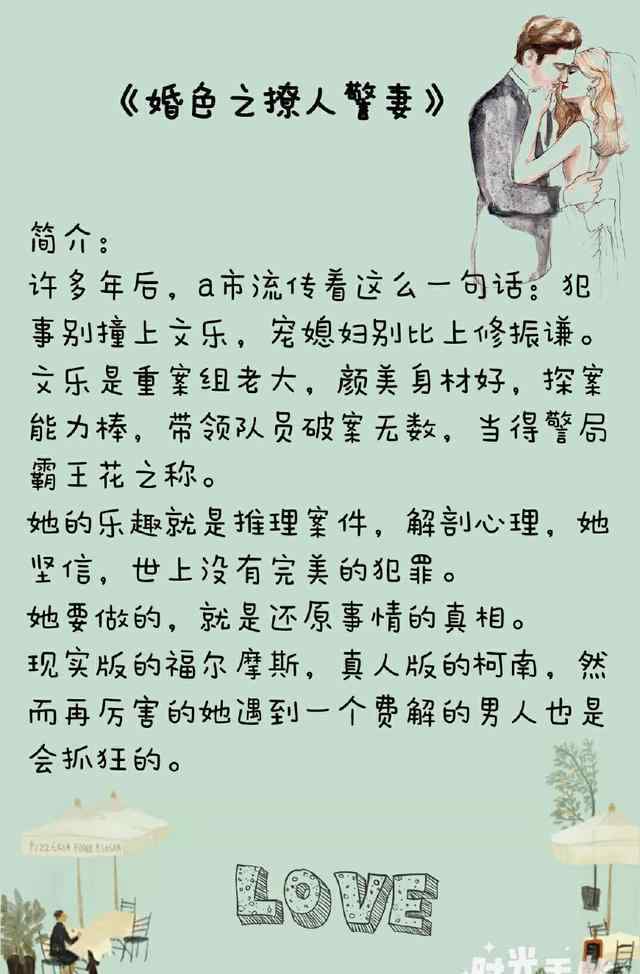 《婚色之撩人警妻》
简介：
许多年后，a市流传着这么一句话：犯
事别撞上文乐，宠媳妇别比上修振谦。
文乐是重案组老大，颜美身材好，探案
能力棒，带领队员破案无数，当得警局
霸王花之称。
她的乐趣就是推理案件，解剖心理，她
坚信，世上没有完美的犯罪。
她要做的，就是还原事情的真相。
现实版的福尔摩斯，真人版的柯南，然
而再厉害的她遇到一个费解的男人也是
会抓狂的。
LOVE